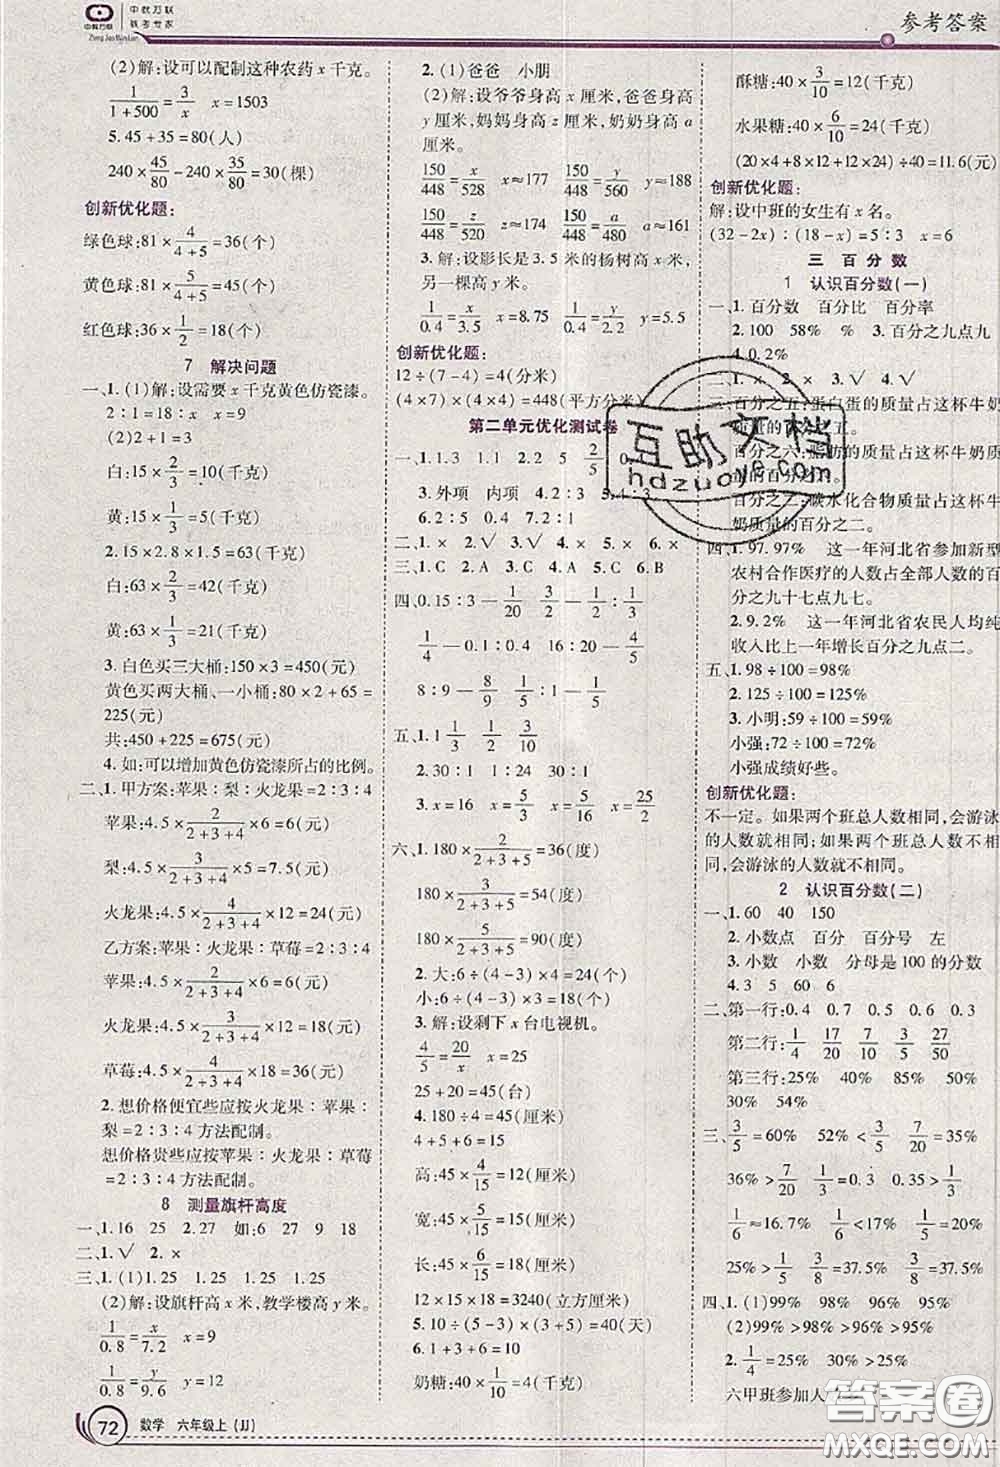 中教互联
联考专家
中教互联
Zhong Jiao Wan Lian
参考答案
(2)解:设可以配制这种农药x千克。
1/(1+500)=3/x x=1503
5. 45+35=80(人)
240×45/80-240×35/80=30(棵)
创新优化题:
绿色球:81×4/(4+5)=36(个)
黄色球:81×5/(4+5)=45(个)
红色球:36×1/2=18(个)
7 解决问题
一、1. (1)解:设需要x千克黄色仿瓷漆。
2∶1=18∶x x=9
白:15×2/3=10(千克)
黄:15×1/3=5(千克)
2. 15×2.8×1.5=63(千克)
白:63×2/3=42(千克)
黄:63×1/3=21(千克)
3. 白色买三大桶:150×3=450(元)
黄色买两大桶、一小桶:80×2+65=
225(元)
共:450+225=675(元)
4. 如:可以增加黄色仿瓷漆所占的比例。
二、1. 甲方案:苹果∶梨∶火龙果=2∶3∶4
苹果:4.5×2/(2+3+4)×6=6(元)
梨:4.5×3/(2+3+4)×5=7.5(元)
火龙果:4.5×4/(2+3+4)×12=24(元)
乙方案:苹果∶火龙果∶草莓=2∶3∶4
苹果:4.5×2/(2+3+4)×6=6(元)
火龙果:4.5×3/(2+3+4)×12=18(元)
草莓:4.5×4/(2+3+4)×18=36(元)
2. 想价格便宜些应按火龙果∶苹果∶
梨=2∶3∶4方法配制。
想价格贵些应按苹果∶火龙果∶草莓
=2∶3∶4方法配制。
8 测量旗杆高度
一、1. 16 25 2. 27 如:6 27 9 18
二、1. √ 2. ×
三、1. (1)1.25 1.25 1.25 1.25
(2)解:设旗杆高x米,教学楼高y米。
1/0.8=x/7.2 x=9
1/0.8=y/9.6 y=12
72 数学 六年级上(JJ)
2. (1)爸爸 小朋
(2)解:设爷爷身高x厘米,爸爸身高
y厘米,妈妈身高z厘米,奶奶身高a
厘米。
150/448=x/528 x≈177 150/448=y/560 y≈188
150/448=z/520 z≈174 150/448=a/480 a≈161
3. 解:设影长是3.5米的杨树高x米,
另一棵高y米。
1/0.4=x/3.5 x=8.75 1/0.4=y/2.2 y=5.5
创新优化题:
12÷(7-4)=4(分米)
(4×7)×(4×4)=448(平方分米)
第二单元优化测试卷
一、1. 1.3 1.1 2. 2 5 2/5
3. 外项 内项 4. 2 5. 4∶3
6. 2∶5 1∶9 7. 0.48
二、1. × 2. √ 3. √ 4. × 5. × 6. ×
三、1. C 2. A 3. B 4. B 5. C 6. B
四、0.15∶3—1/20 0.5/1.5—1/2∶1/3
1/4—0.1∶0.4 1/5∶1/4—4/5
8∶9—8/9 1/5∶1—1/5
五、1. 1 1/3 1/2 3/10
2. 30∶1 1∶24 9∶10
3. x=16 x=5/3 x=5/16 x=25/32
六、1. 180×2/(2+3+5)=36(度)
180×3/(2+3+5)=54(度)
180×5/(2+3+5)=90(度)
2. 大:6÷(4-3)×4=24(个)
小:6÷(4-3)×3=18(个)
3. 解:设剩下x台电视机。
4/5=20/x x=25
25+20=45(台)
4. 180÷4=45(厘米)
4+5+6=15
高:45×4/15=12(厘米)
宽:45×5/15=15(厘米)
长:45×6/15=18(厘米)
12×15×18=3240(立方厘米)
5. 10÷(5-3)×(5+3)=40(天)
6. 1+3+6=10
奶糖:40×1/10=4(千克)
酥糖:40×3/10=12(千克)
水果糖:40×6/10=24(千克)
(20×4+8×12+12×24)÷40=11.6(元)
创新优化题:
解:设中班的女生有x名。
(32-2x)∶(18-x)=5∶3 x=6
三 百分数
1 认识百分数(一)
一、1. 百分数 百分比 百分率
2. 100 58% % 3. 百分之九点九
4. 0.2%
二、1. × 2. × 3. √ 4. √
三、百分之五:蛋白蛋的质量占这杯牛奶
质量的百分之五。
百分之六:脂肪的质量占这杯牛奶质
量的百分之六。
百分之二:碳水化合物质量占这杯牛
奶质量的百分之二。
四、1. 97.97% 这一年河北省参加新型
农村合作医疗的人数占全部人数的百
分之九十七点九七。
2. 9.2% 这一年河北省农民人均纯
收入比上一年增长百分之九点二。
五、1. 98÷100=98%
2. 125÷100=125%
3. 小明:59÷100=59%
小强:72÷100=72%
小强成绩好些。
创新优化题:
不一定。如果两个班总人数相同,会游泳
的人数就相同;如果两个班总人数不相
同,会游泳的人数就不相同。
2 认识百分数(二)
一、1. 60 40 150
2. 小数点 百分 百分号 左
3. 小数 小数 分母是100的分数
4. 3 5 60 6
二、第一行:0.4 0.7 0.5 0.6 0.3
第二行:1/4 17/20 3/4 27/50
第三行:25% 40% 85% 75%
30% 54%
三、3/5=60% 52%<3/5 7/20=35%
36%>7/20 1/3>0.3 0.35<36%
1/6≈16.7% 1/6<1/5 1/5=20%
25%>1/5 3/8=37.5% 3/8>25%
四、1. (1)99% 98% 96% 92%
(2)99%>98%>96%>92%
2. 1/4=25% 25%>22%
六甲班参加人
互助文档
hdzuoye.com
答案圈
MXQE.COM